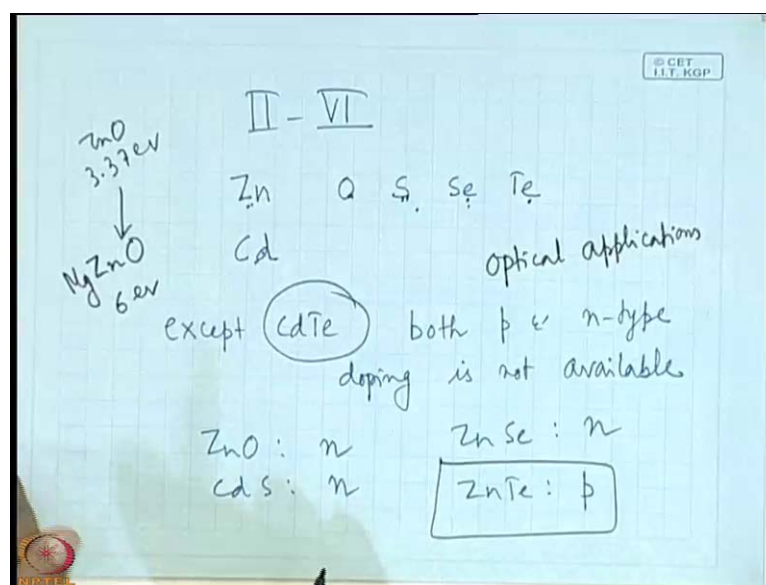 © CET
I.I.T. KGP
II - VI
ZnO
3.37 ev
Zn O S Se Te
Cd
MgZnO
6 ev
optical applications
except CdTe both p & n-type
doping is not available
ZnO : n ZnSe : n
CdS : n ZnTe : p
NPTEL